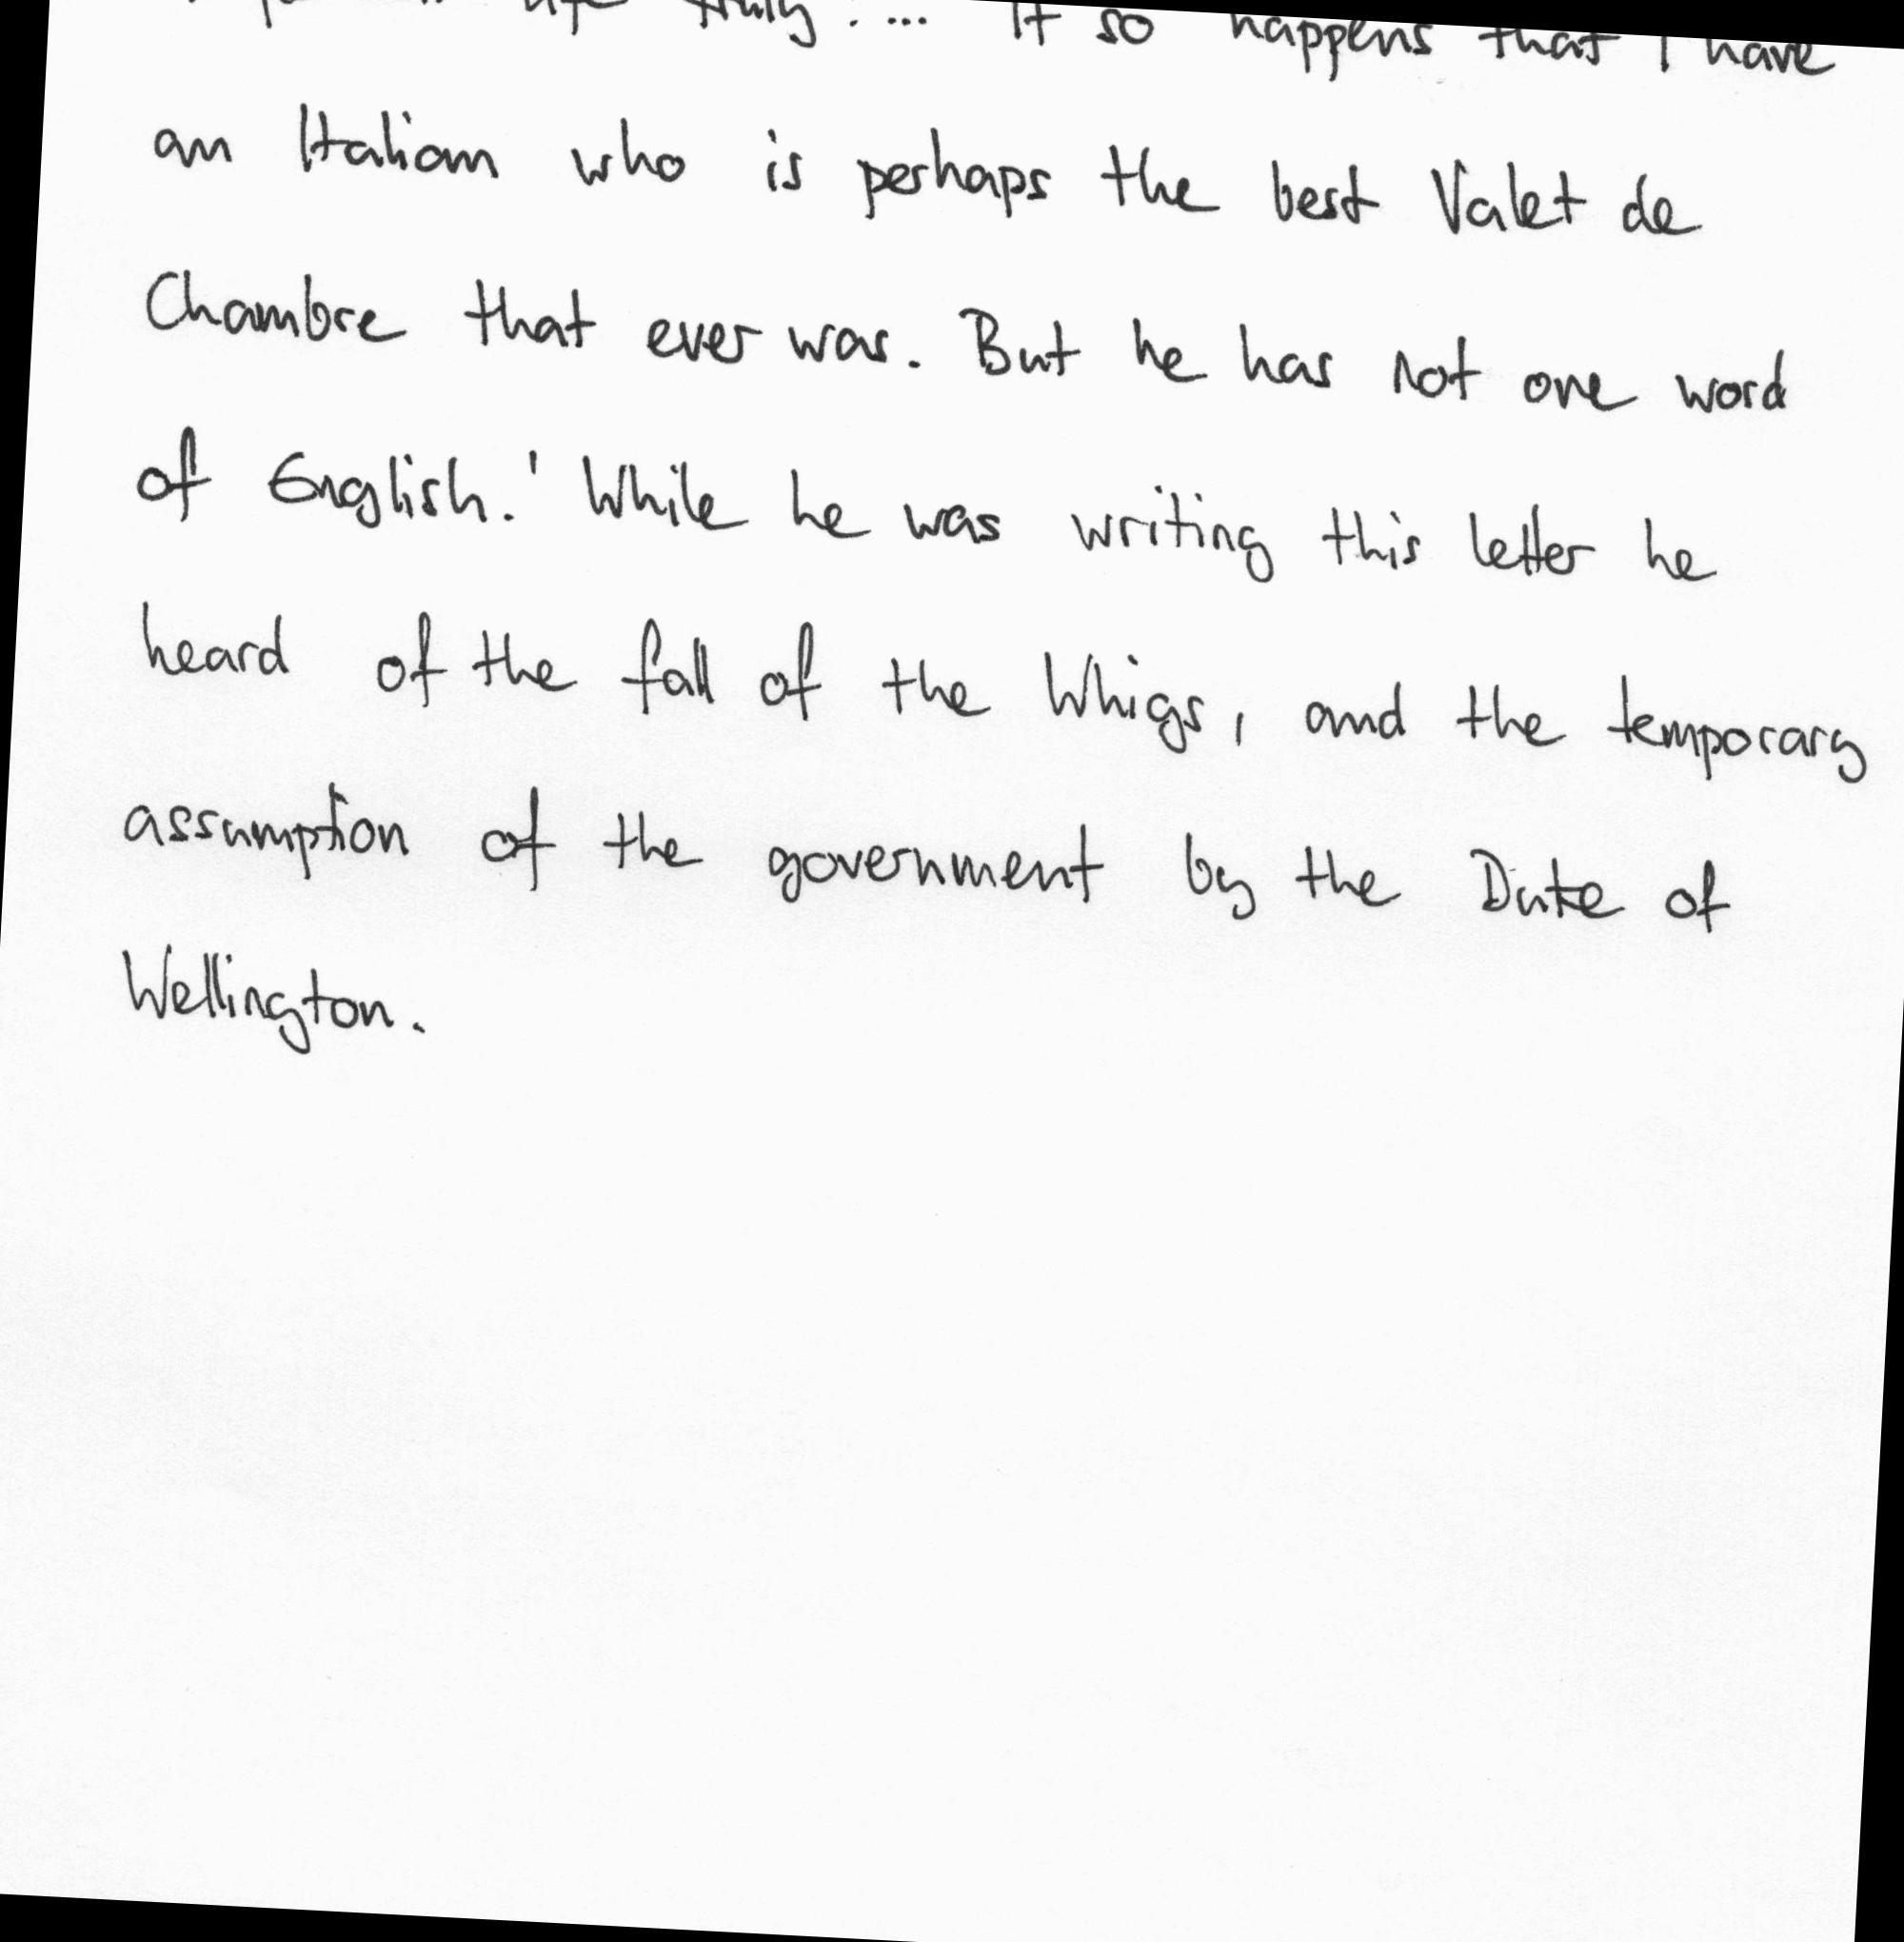 life truly. ... It so happens that I have
an Italian who is perhaps the best Valet de
Chambre that ever was. But he has not one word
of English.' While he was writing this letter he
heard of the fall of the Whigs, and the temporary
assumption of the government by the Duke of
Wellington.